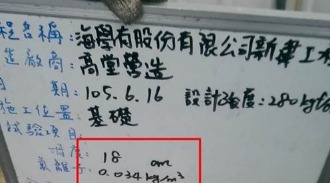 程名稱:海學有股份有限公司新建工
造廠商:高堂營造
期:105.6.16 設計強度:280 kgf
施工位置:基礎
試驗項目:
18 cm
氯離子 0.034 kg/m³